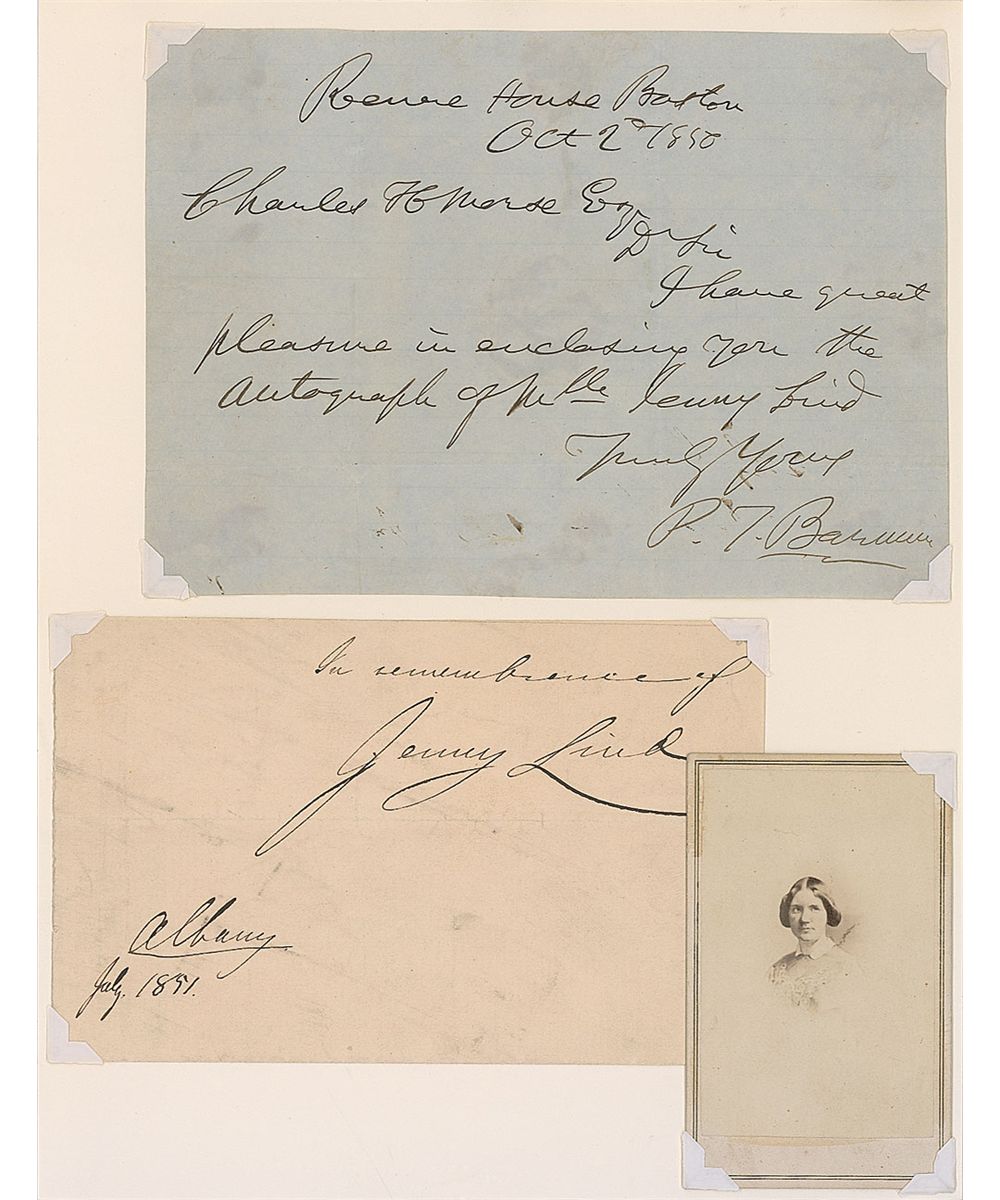 Revere House Boston
Oct 2d 1850
Charles H Morse Esq
Dr Sir
I have great
pleasure in enclosing you the
autograph of Mlle Jenny Lind
Truly Yours
P. T. Barnum
In remembrance of
Jenny Lind
Albany
July. 1851.